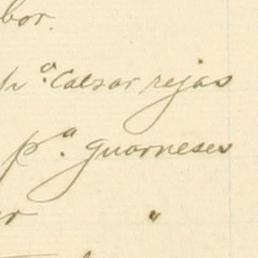 bor.
pª. Calzar rejas
pª. guarneses
or "